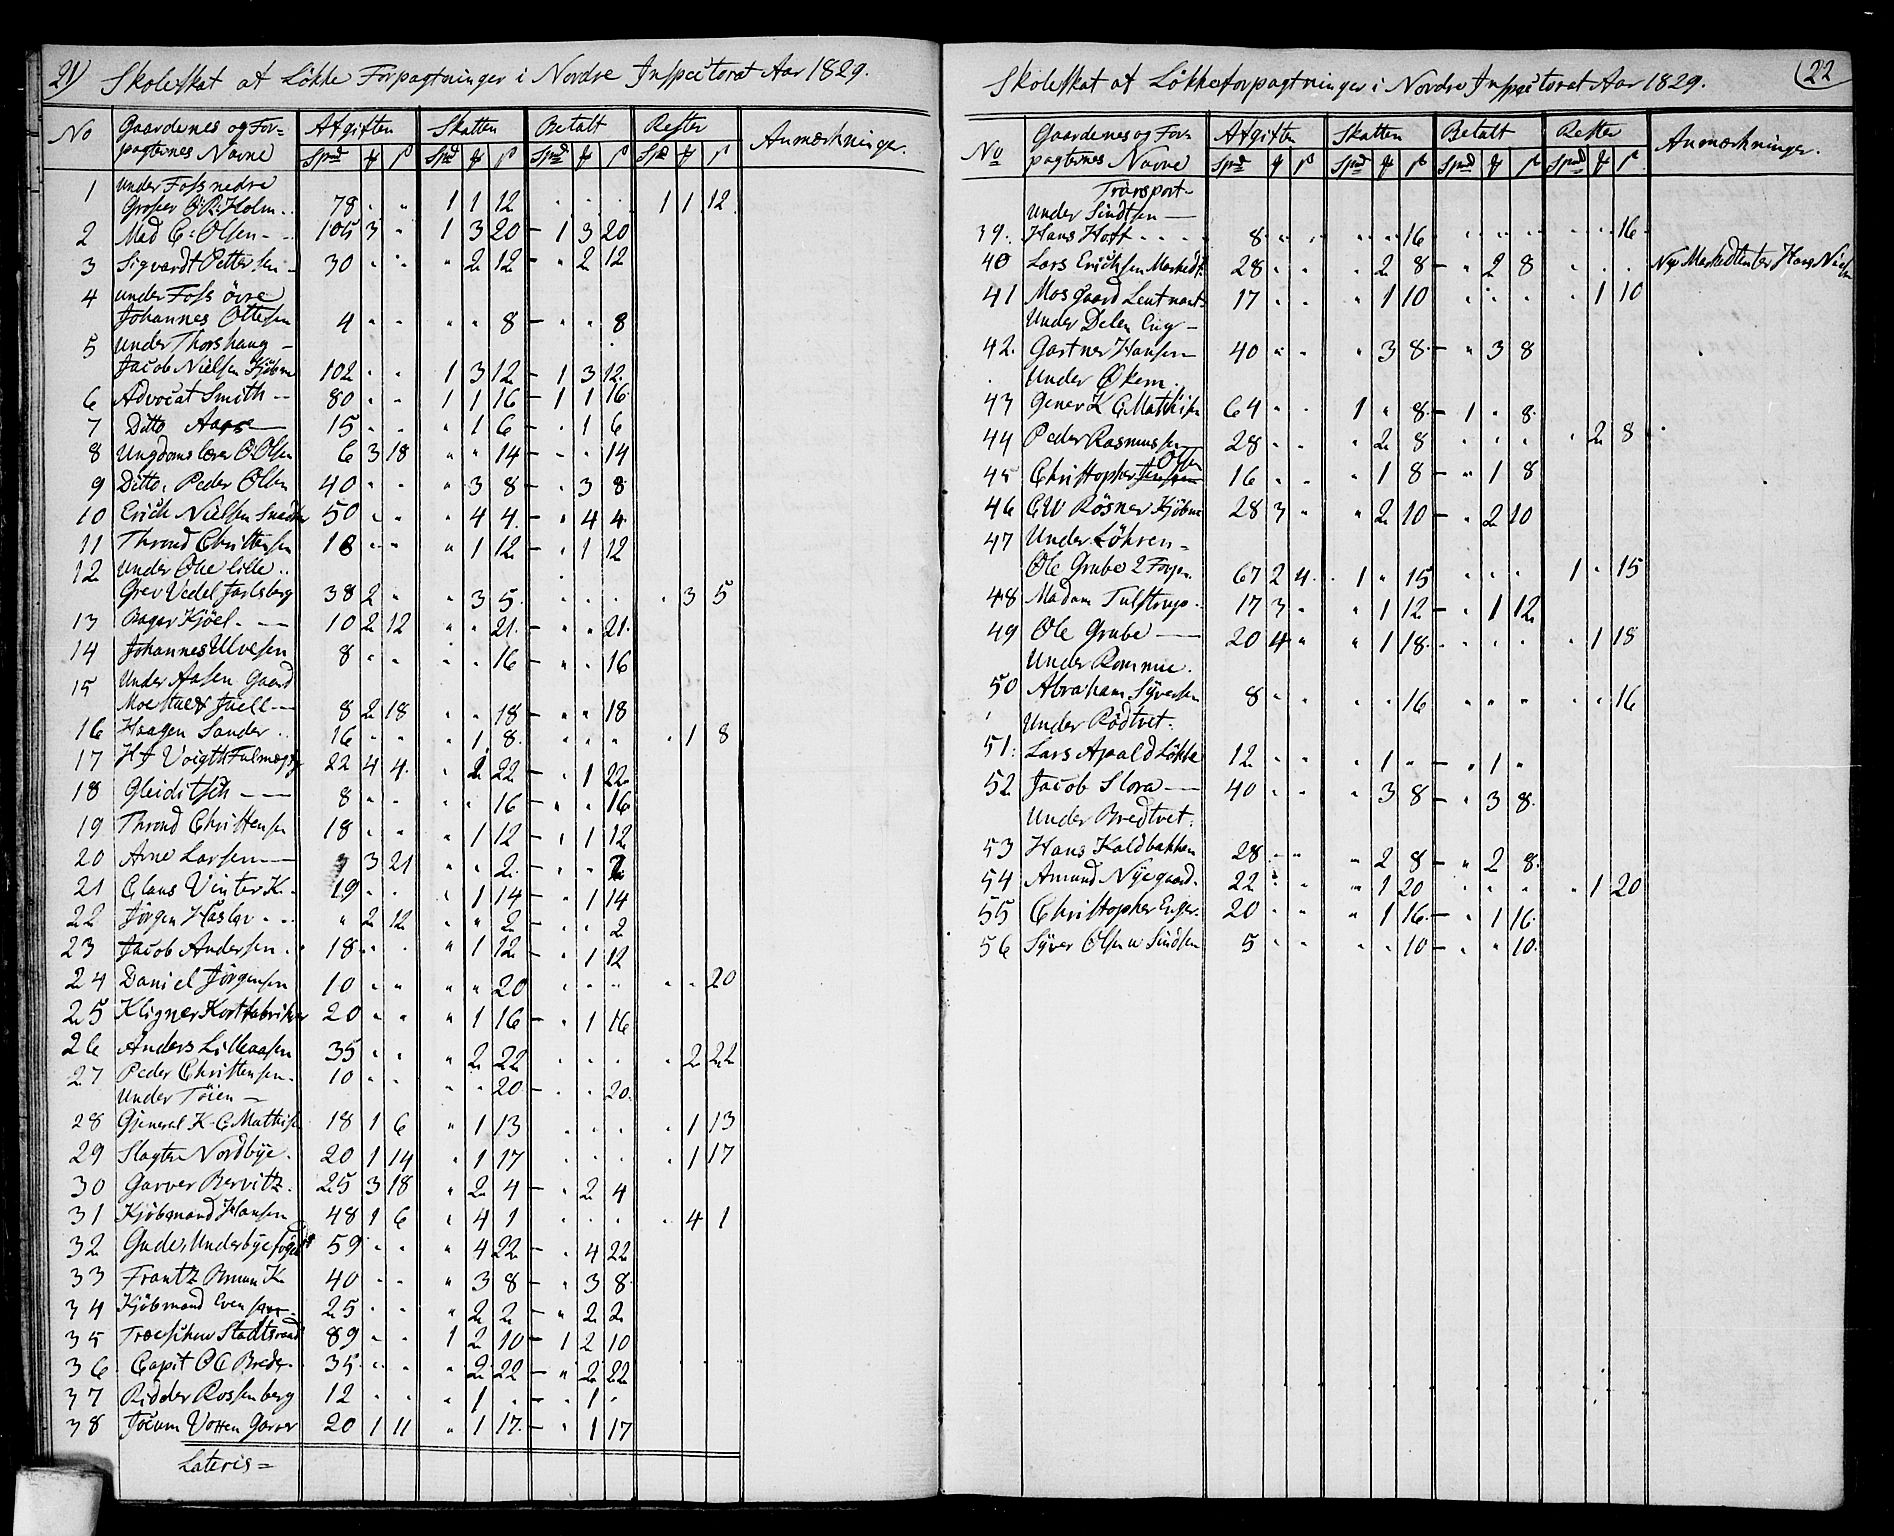 21)
Skoleskat af Løkke Forpagtninger i Nordre Inspectorat Aar 1829.
No | Gaardenes og For= pagternes Navne | Afgiften | Skatten | Betalt | Rester | Anmærkninger.
Spd ₰ ß | Spd ₰ ß | Spd ₰ ß | Spd ₰ ß
1 under Foss nedre
Groser O R: Holm.. 78 " " | 1 1 12 | . . . | 1 1 12
2 Mad C: Olsen - 105 3 " | 1 3 20 - 1 3 20
3 Sigvardt Pettersen 30 " " | " 2 12 | " 2 12
4 under Foss övre
Johannes Ottesen 4 " " | " " 8 - " " 8
5 under Thorshaug -
Jacob Nielsen Kjöbm 102 " " | 1 3 12 - 1 3 12
6 Advocat Smith -- 80 " " | 1 1 16 - 1 1 16
7 Ditto Aars 15 " " | " 1 6 - " 1 6
8 Ungdomslærer O Olsen 6 3 18 | " " 14 - " " 14
9 Ditto, Peder Olsen 40 " " | " 3 8 - " 3 8
10 Erich Nielsen Snedker 50 " " | " 4 4 - " 4 4
11 Thrond Christensen 18 " " | " 1 12 - " 1 12
12 under Oke lille ..
Grev Vedel Jarlsberg 38 2 " | " 3 5 | . . . | " 3 5
13 Bager Kjöel - -- 10 2 12 | " " 21 - " " 21
14 Johannes Ulvesen 8 " " | " " 16 - " " 16
15 under Aasen Gaard
Moestue & Juell -- 8 2 18 | " " 18 - " " 18
16 Haagen Sander .. 16 " " | " 1 8 | " " " | " 1 8
17 H J Voigth 22 4 4 | " 1 22 - " 1 22
18 Gleiditsch --- 8 " " | " " 16 - " " 16
19 Thrond Christensen 18 " " | " 1 12 - " 1 12
20 Arne Larsen -- " 3 21 | " " 2 - " " 2
21 Claus Vinter K. 19 " " | " 1 14 - " 1 14
22 Jörgen Haslev - .. " 2 12 | " " 2 - " " 2
23 Jacob Andersen 18 " " | " 1 12 - " 1 12
24 Daniel Jörgensen 10 " " | " " 20 | " " " | " " 20
25 Kligner Kortfabrikør 20 " " | " 1 16 - " 1 16
26 Anders Lilleaasen 35 " " | " 2 22 | . . . | " 2 22
27 Peder Christensen 10 " " | " " 20 - " " 20
under Töien -
28 Gjeneral K. G Mathisen 18 1 6 | " 1 13 | . . . | " 1 13
29 Slagter Nordbye. 20 1 14 | " 1 17 | . . . | " 1 17
30 Garver Bervitz. 25 3 18 | " 2 4 - " 2 4
31 Kjöbmand Hansen 48 1 6 | " 4 1 | . . . | " 4 1
32 Gude, Underbyefoged 59 " " | " 4 22 - " 4 22
33 Frantz Bruun K. 40 " " | " 3 8 - " 3 8
34 Kjöbmand Evensen 25 " " | " 2 2 - " 2 2
35 Treschow Stadtsraad 89 " " | 1 2 10 - 1 2 10
36 Capit O C Breder. 35 " " | " 2 22 - " 2 22
37 Ridder Rossenberg 12 " " | " 1 " - " 1 "
38 Jocum Votten Garver 20 1 11 | " 1 17 - " 1 17
Lateris =
22
Skoleskat af Løkkeforpagtninger i Nordre Inspectorat Aar 1829.
No | Gaardenes og For- pagternes Navne | Afgiften | Skatten | Betalt | Rester | Anmærkninger.
Spd ₰ ß | Spd ₰ ß | Spd ₰ ß | Spd ₰ ß
Transport
Under Sindsen --
39. Hans Hoff - - - - 8 " " | " " 16 | " " " | " " 16
40 Lars Erichsen Markedt. 28 " " | " 2 8 - " 2 8 | Nye Markedtenter Hans Nielsen
41 Mosgaard Leutnant 17 " " | " 1 10 | " " " | " 1 10
Under Delen Eng -
42. Gartner Hansen 40 " " | " 3 8 - " 3 8
Under Økern.
43 Gener K G Mathisen 64 " " | 1 " 8 - 1 " 8
44 Peder Rasmussen 28 " " | " 2 8 | " " " | " 2 8
45 Christopher Olsen 16 " " | " 1 8 - " 1 8
46 C W Rösner Kjöbm 28 3 " | " 2 10 - " 2 10
47 Under Löhren =
Ole Grube 2 Forp. 67 2 4 | 1 " 15 | " " " | 1 " 15
48 Madam Tulstrup. 17 3 " | " 1 12 - " 1 12
49 Ole Grube -- 20 4 " | " 1 18 | " " " | " 1 18
Under Rommie.
50 Abraham Syversen 8 " " | " " 16 | " " " | " " 16
Under Rödtvet.
51. Lars Apald Lökke 12 " " | " 1 " - " 1 "
52 Jacob Slora -- 40 " " | " 3 8 - " 3 8
Under Bredtvet.
53 Hans Kaldbakken 28 " " | " 2 8 - " 2 8
54 Amund Nyegaard. 22 " " | " 1 20 | " " " | " 1 20
55 Christopher Enger. 20 " " | " 1 16 - " 1 16
56 Syver Olsen u Sindsen 5 " " | " " 10 - " " 10